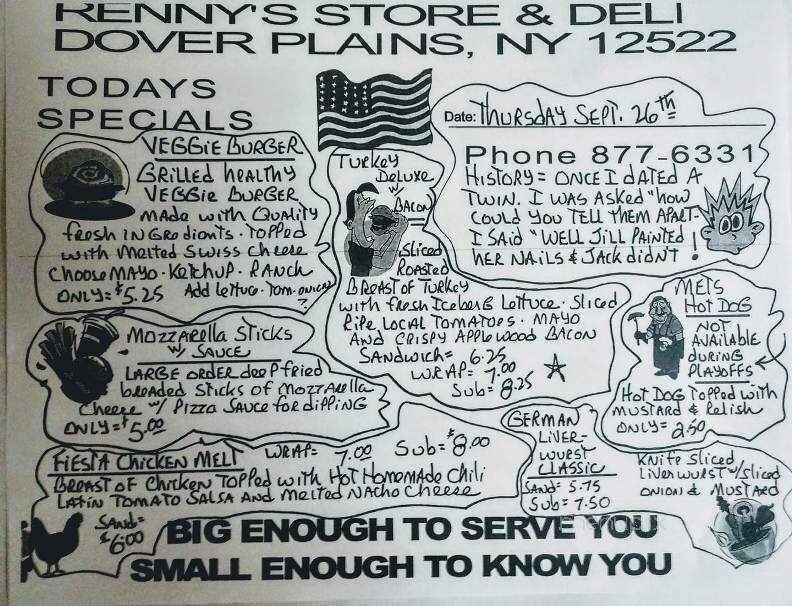 RENNY'S STORE & DELI
DOVER PLAINS, NY 12522
TODAYS
SPECIALS
Date: Thursday Sept. 26th
Phone 877-6331
History = Once I dated A
Twin. I was asked "how
could you tell them apart-
I said "Well Jill painted
her nails & Jack didn't!
VEGGIE BURGER
Grilled healthy
Veggie Burger
made with Quality
fresh INGredients · Topped
with melted Swiss cheese
Choose MAYO · Ketchup · Ranch
ONLY = $5.25 Add lettuce · Tom · onion?
Turkey
Deluxe
w/
BACON
Sliced
Roasted
Breast of Turkey
with fresh Iceberg Lettuce · Sliced
Ripe LOCAL TOMATOES · MAYO
AND CRISPY APPLEWOOD BACON
SANDwich = 6.25
WRAP = 7.00
Sub = 8.25
METS
HOT DOG
NOT
AVAILABLE
DURING
PLAYOFFS
HOT DOG TOPPED with
MUSTARD & Relish
ONLY = 2.50
MOZZARELLA STICKS
w/ SAUCE
LARGE ORDER deep fried
breaded sticks of MOZZARella
Cheese w/ Pizza Sauce for dipping
ONLY = $5.00
FIESTA CHICKEN MELT WRAP = 7.00 Sub = $8.00
BREAST OF CHICKEN TOPPED with HOT Homemade Chili
LATIN TOMATO SALSA AND melted NACHO Cheese
SAND =
$6.00
GERMAN
LIVER-
WURST
CLASSIC
SAND = 5.75
Sub = 7.50
Knife Sliced
Liverwurst w/ sliced
ONION & MUSTARD
BIG ENOUGH TO SERVE YOU
SMALL ENOUGH TO KNOW YOU